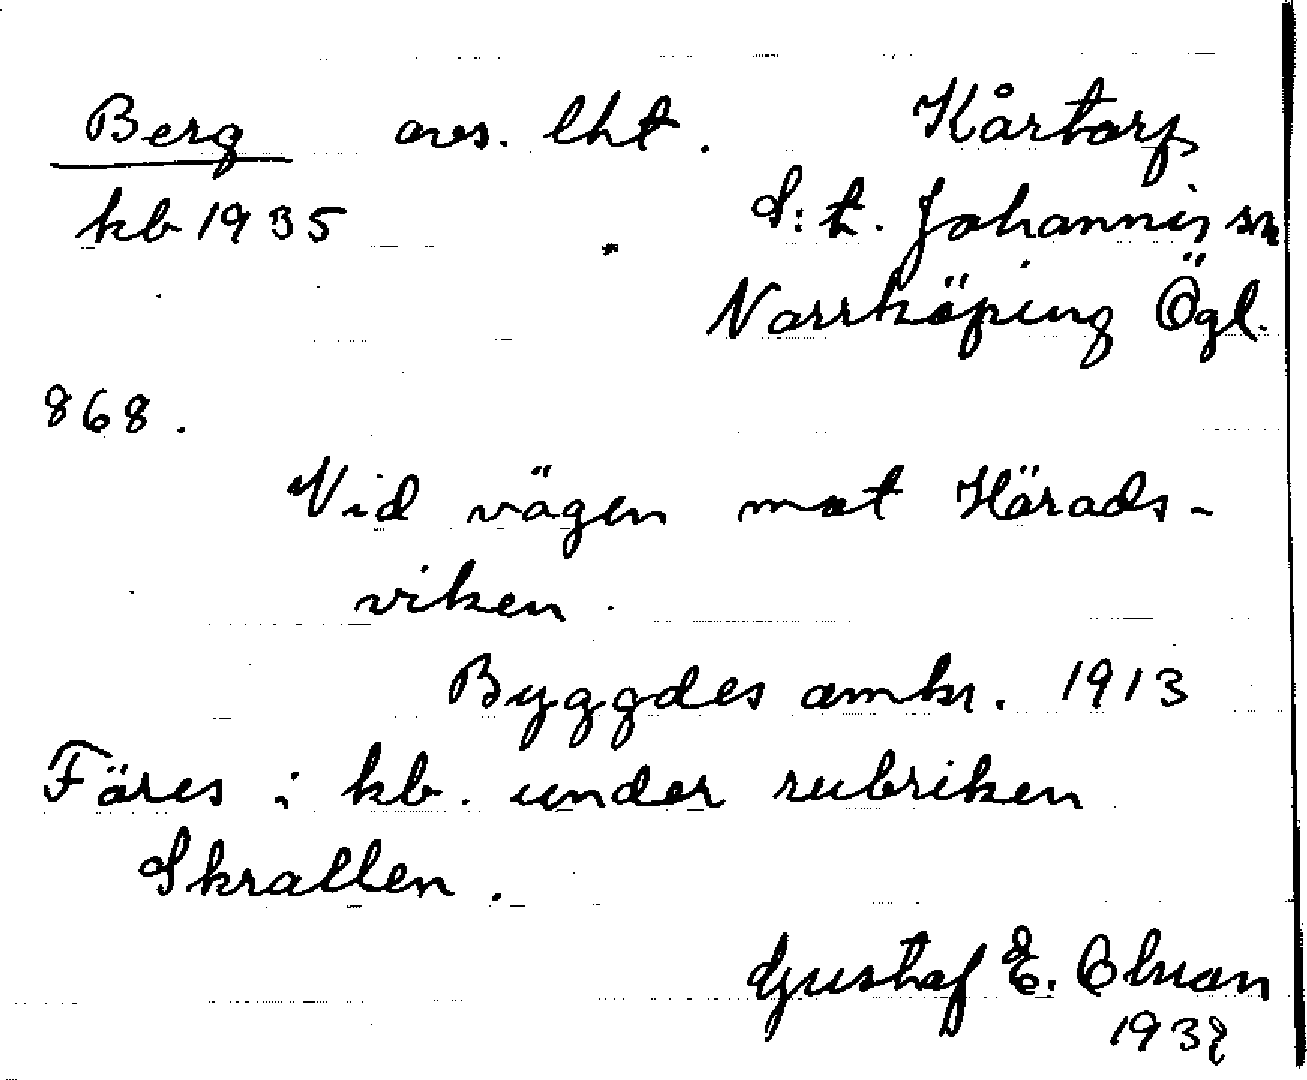 Berg avs. lht. Kårtorp
kb 1935 S:t. Johannis sn
Norrköping Ögl.
868.
Vid vägen mot Härads-
viken.
Byggdes omkr. 1913
Föres i kb. under rubriken
Skrallen.
Gustaf E. Olsson
193